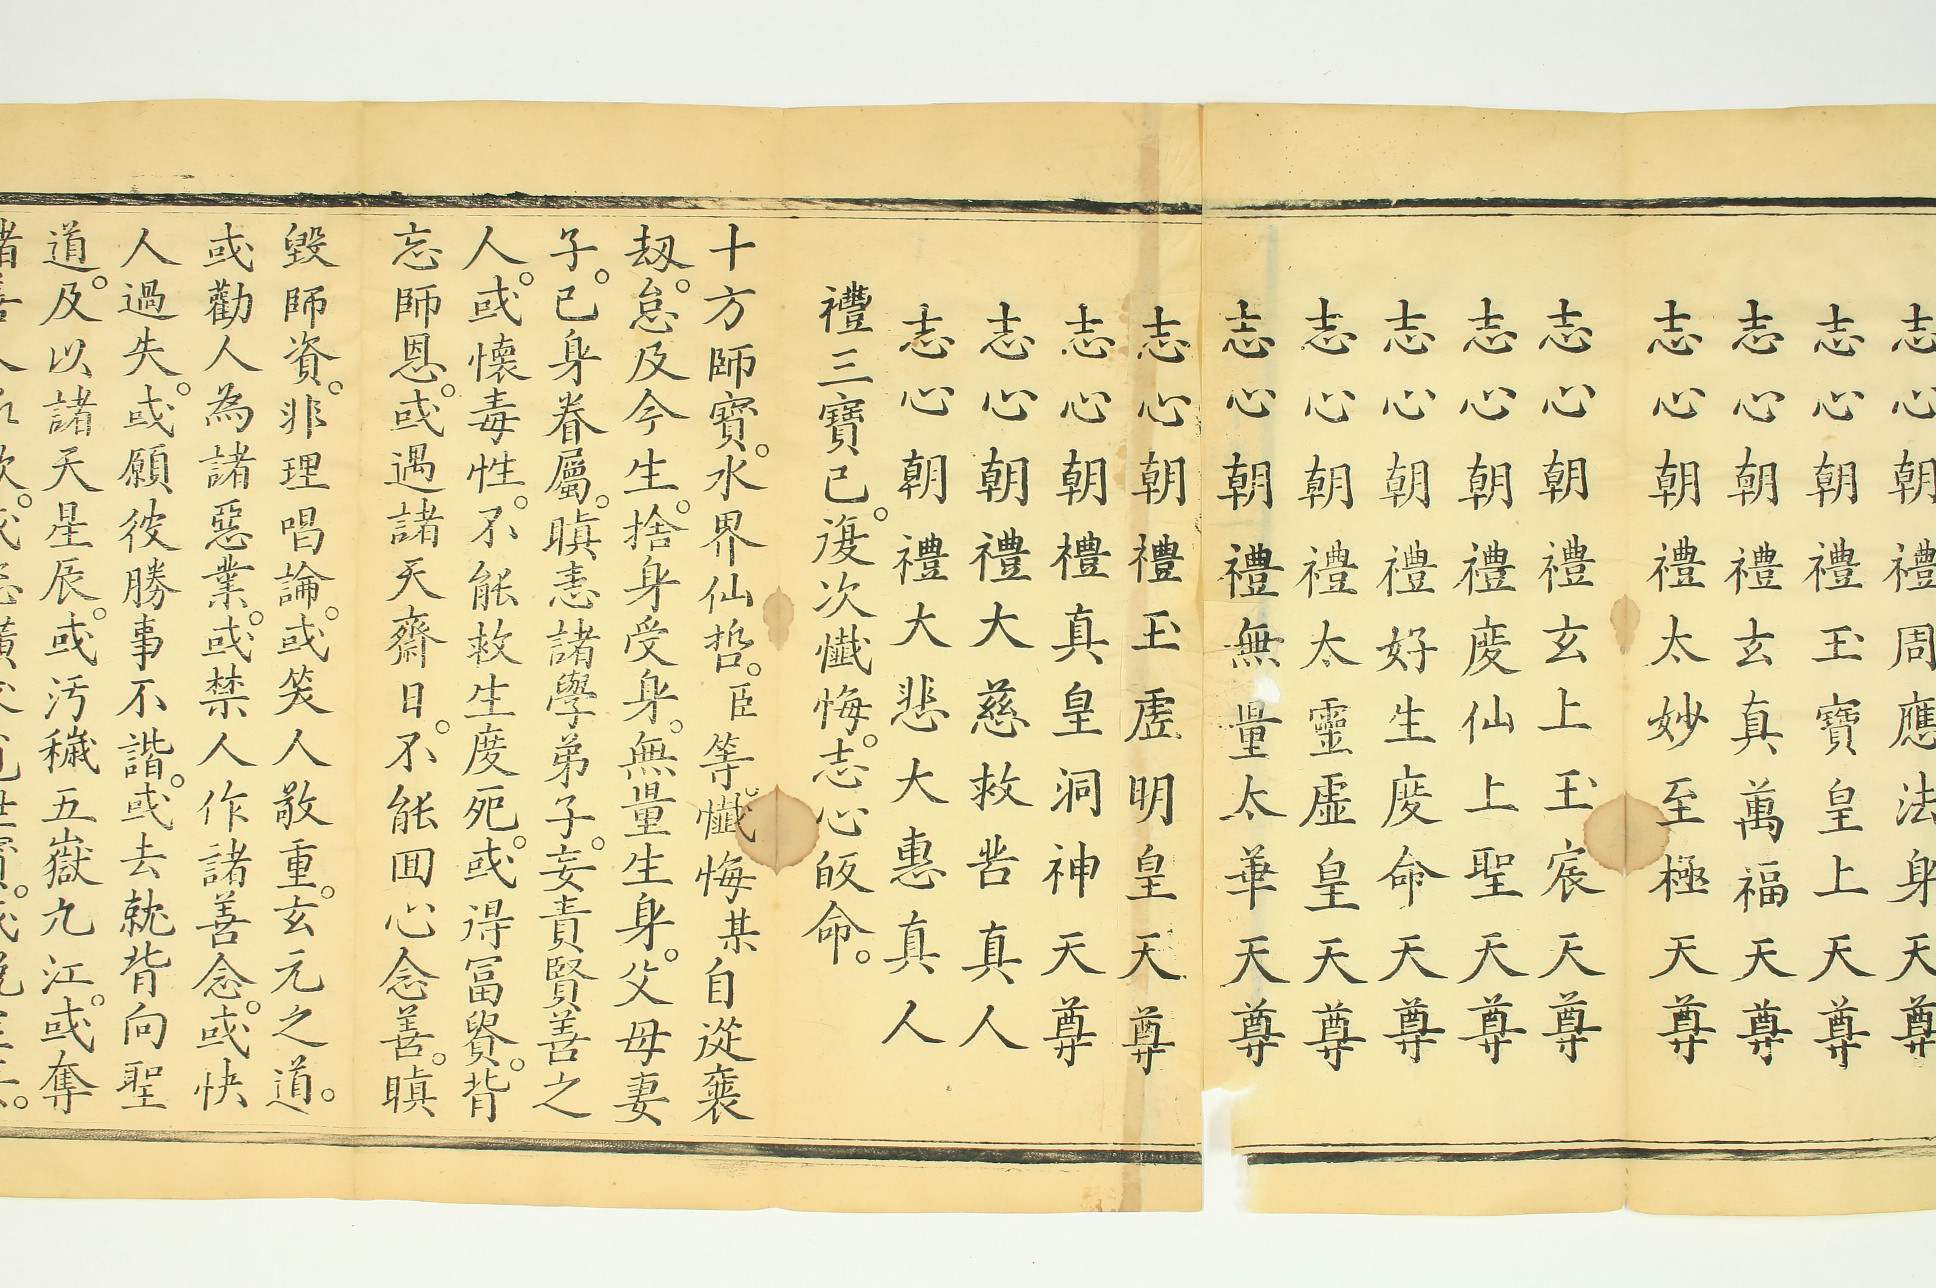 志心朝禮周應法身天尊
志心朝禮玉寶皇上天尊
志心朝禮玄真萬福天尊
志心朝禮太妙至極天尊
志心朝禮玄上玉宸天尊
志心朝禮度仙上聖天尊
志心朝禮好生度命天尊
志心朝禮太靈虛皇天尊
志心朝禮無量太華天尊
志心朝禮玉虛明皇天尊
志心朝禮真皇洞神天尊
志心朝禮大慈救苦真人
志心朝禮大悲大惠真人
禮三寶已。復次懺悔。志心皈命。
十方師寶。水界仙哲。臣等懺悔某自從曩
刼。怠及今生。捨身受身。無量生身。父母妻
子。已身眷屬。瞋恚諸學弟子。妄責賢善之
人。或懷毒性。不能救生度死。或得冨貴。背
忘師恩。或遇諸天齋日。不能囬心念善。瞋
毀師資。非理唱論。或笑人敬重。玄元之道。
或勸人為諸惡業。或禁人作諸善念。或快
人過失。或願彼勝事不諧。或去就背向聖
道。及以諸天星辰。或汚穢五嶽九江。或奪